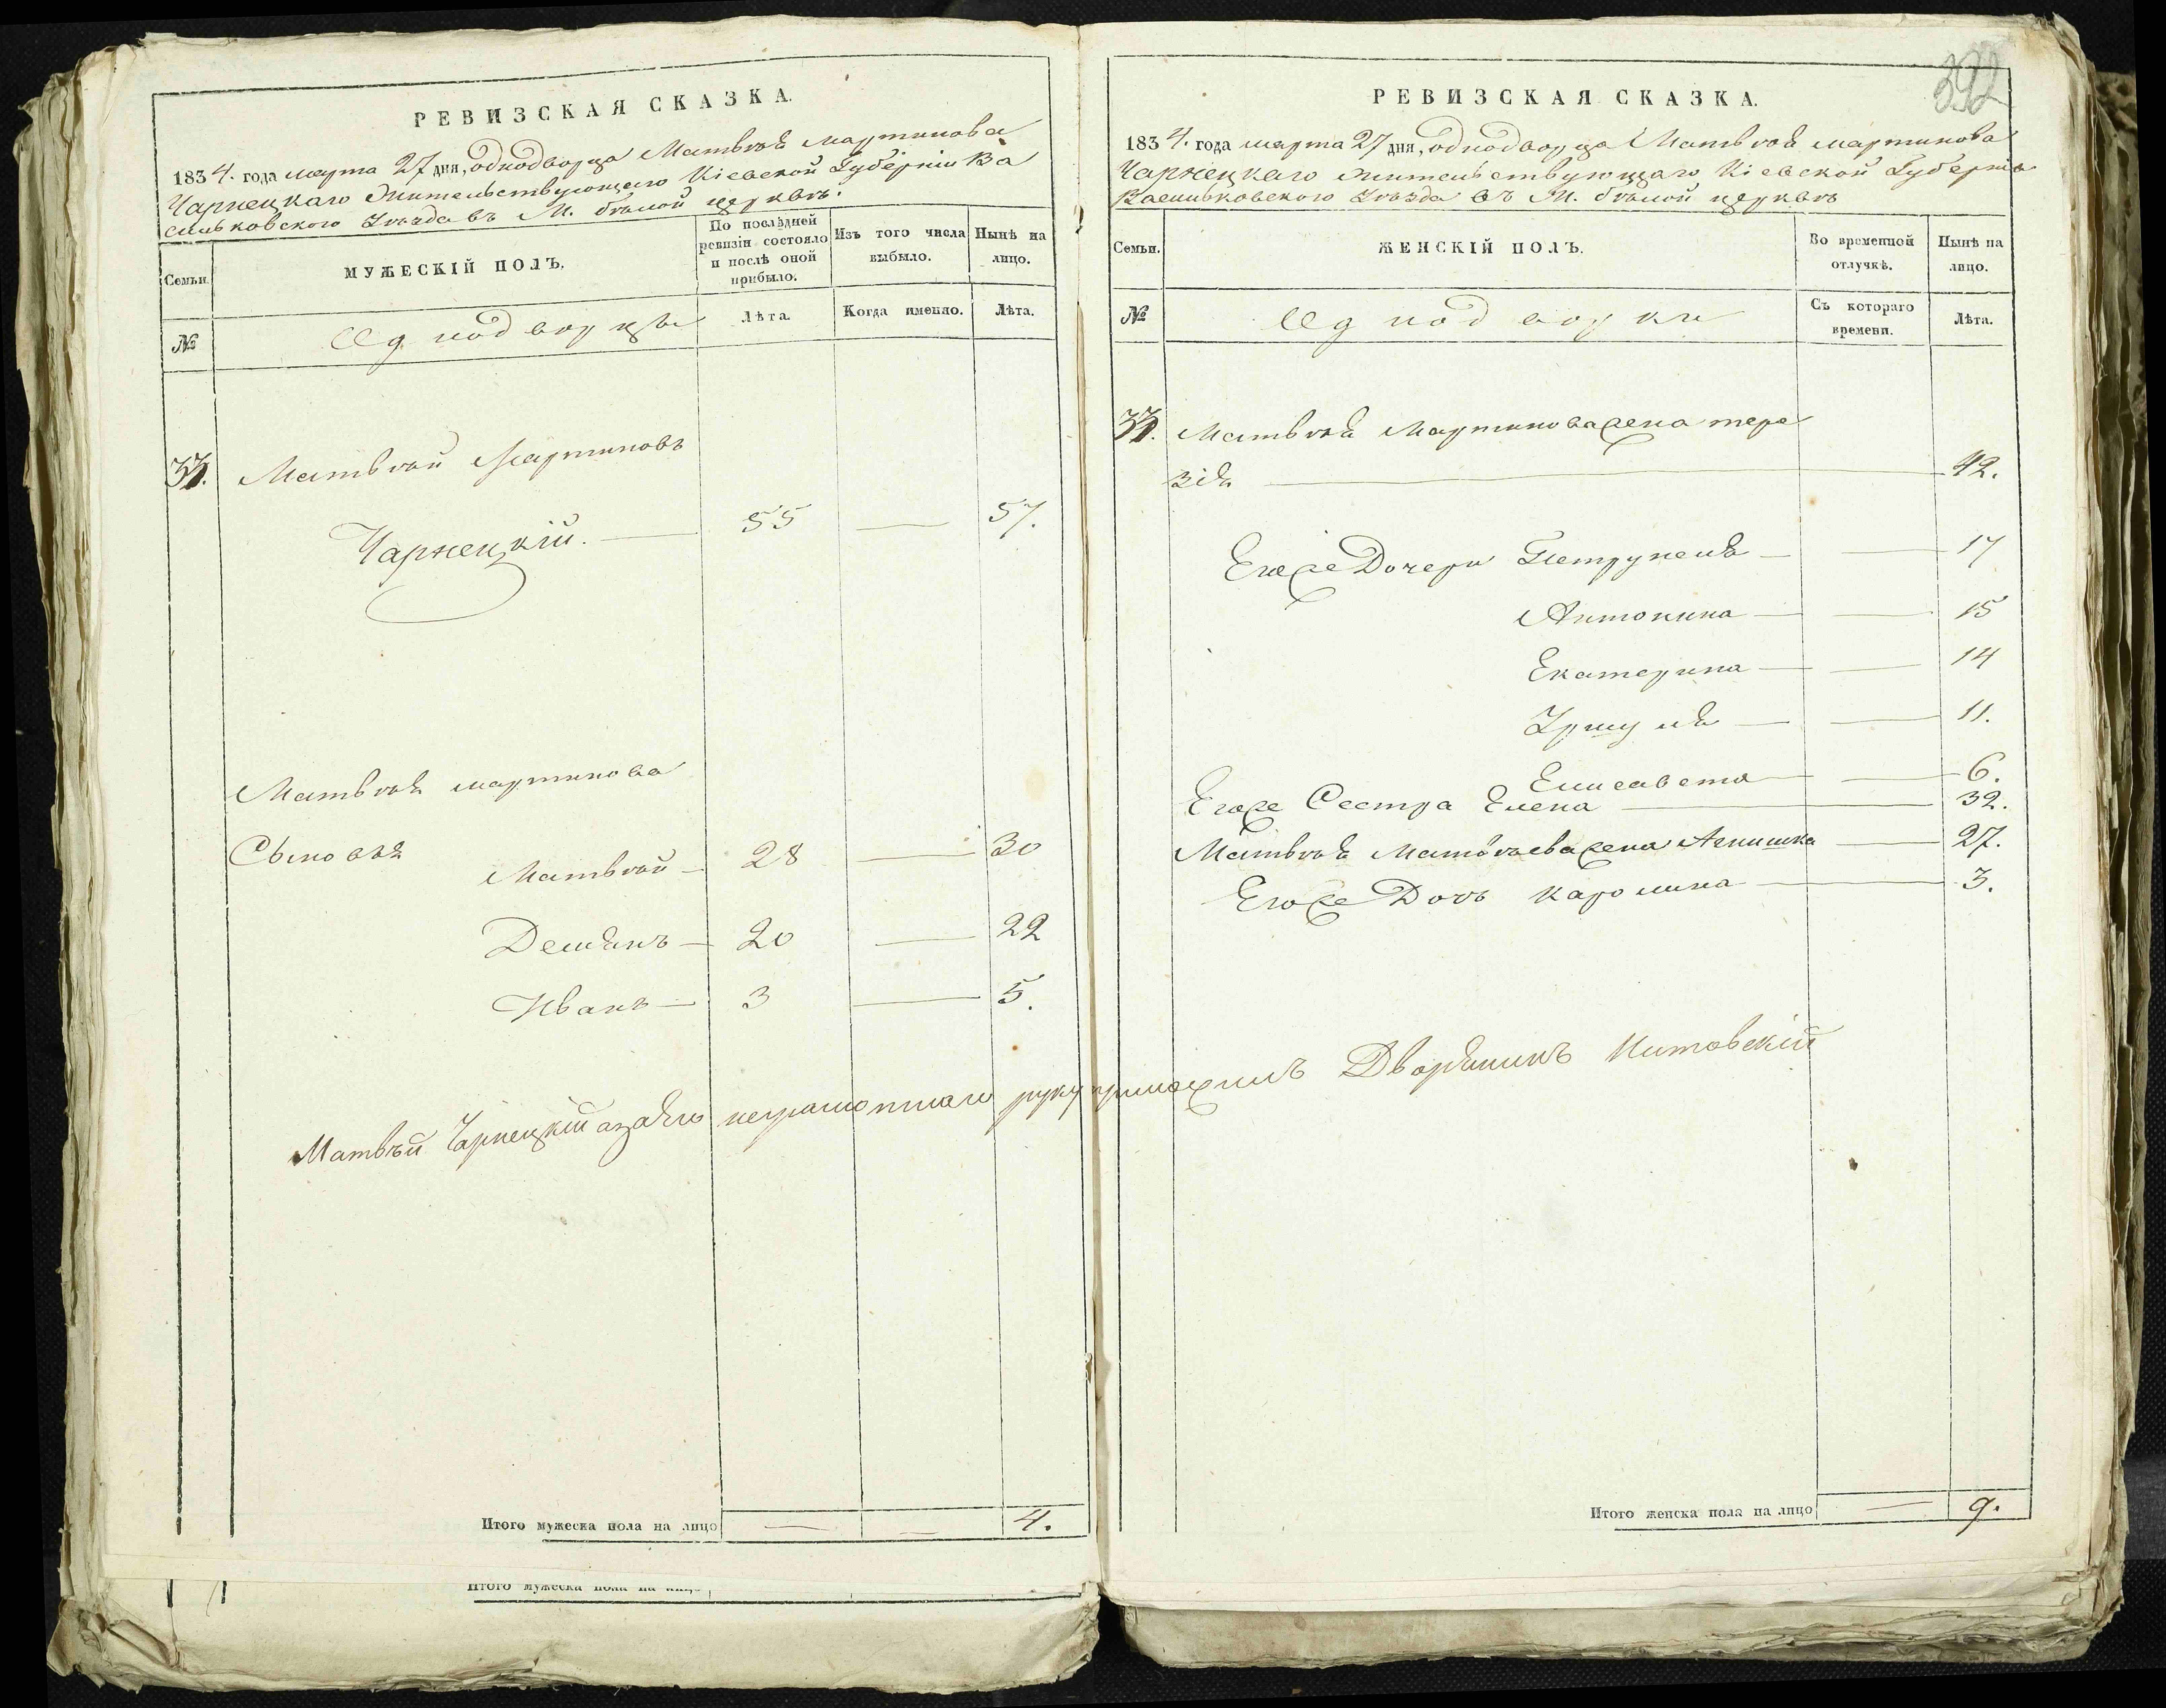 РЕВИЗСКАЯ СКАЗКА.
1834. года марта 27 дня, однодворца Матвѣя мартинова
Чарнецкаго жительствующаго Кіевской Губерніи Ва
сильковского Уѣзда въ М. бѣлой церквѣ:
Семьи.
МУЖЕСКІЙ ПОЛЪ.
По послѣдней ревизіи состояло и послѣ оной прибыло.
Изъ того числа выбыло.
Нынѣ на лицо.
№
Однодворцы
Лѣта.
Когда именно.
Лѣта.
Матвѣй Мартиновъ
Чарнецкій. — 55 — 57.
Матвѣя мартинова
Сыновя
Матвѣй — 28 — 30
Демянъ — 20 — 22
Иванъ — 3 — 5.
Итого мужеска пола на лицо — — 4.
Итого мужеска пола на лицо
392
РЕВИЗСКАЯ СКАЗКА.
1834. года марта 27 дня, однодворца Матвѣя мартинова
Чарнецкаго жительствующаго Кіевской Губерніи
Васильковского Уѣзда въ М. бѣлой церквѣ
Семьи.
ЖЕНСКІЙ ПОЛЪ.
Во временной отлучкѣ.
Нынѣ на лицо.
№
Однодворки
Съ котораго времени.
Лѣта.
Матвѣя Мартинова жена тере
зія — 42.
Егоже Дочери Петрунеля — — 17
Антонина — — 15
Екатерина — — 14
Уршуля — — 11.
Елисавета — — 6.
Егоже Сестра Елена — 32.
Матвѣя Матвѣева жена Агнишка — 27.
Егоже Дочь Каролина — 3.
Матвѣй Чарнецкій а за его неграмотнаго руку приложилъ Дворянинъ
Итого женска пола на лицо — 9.